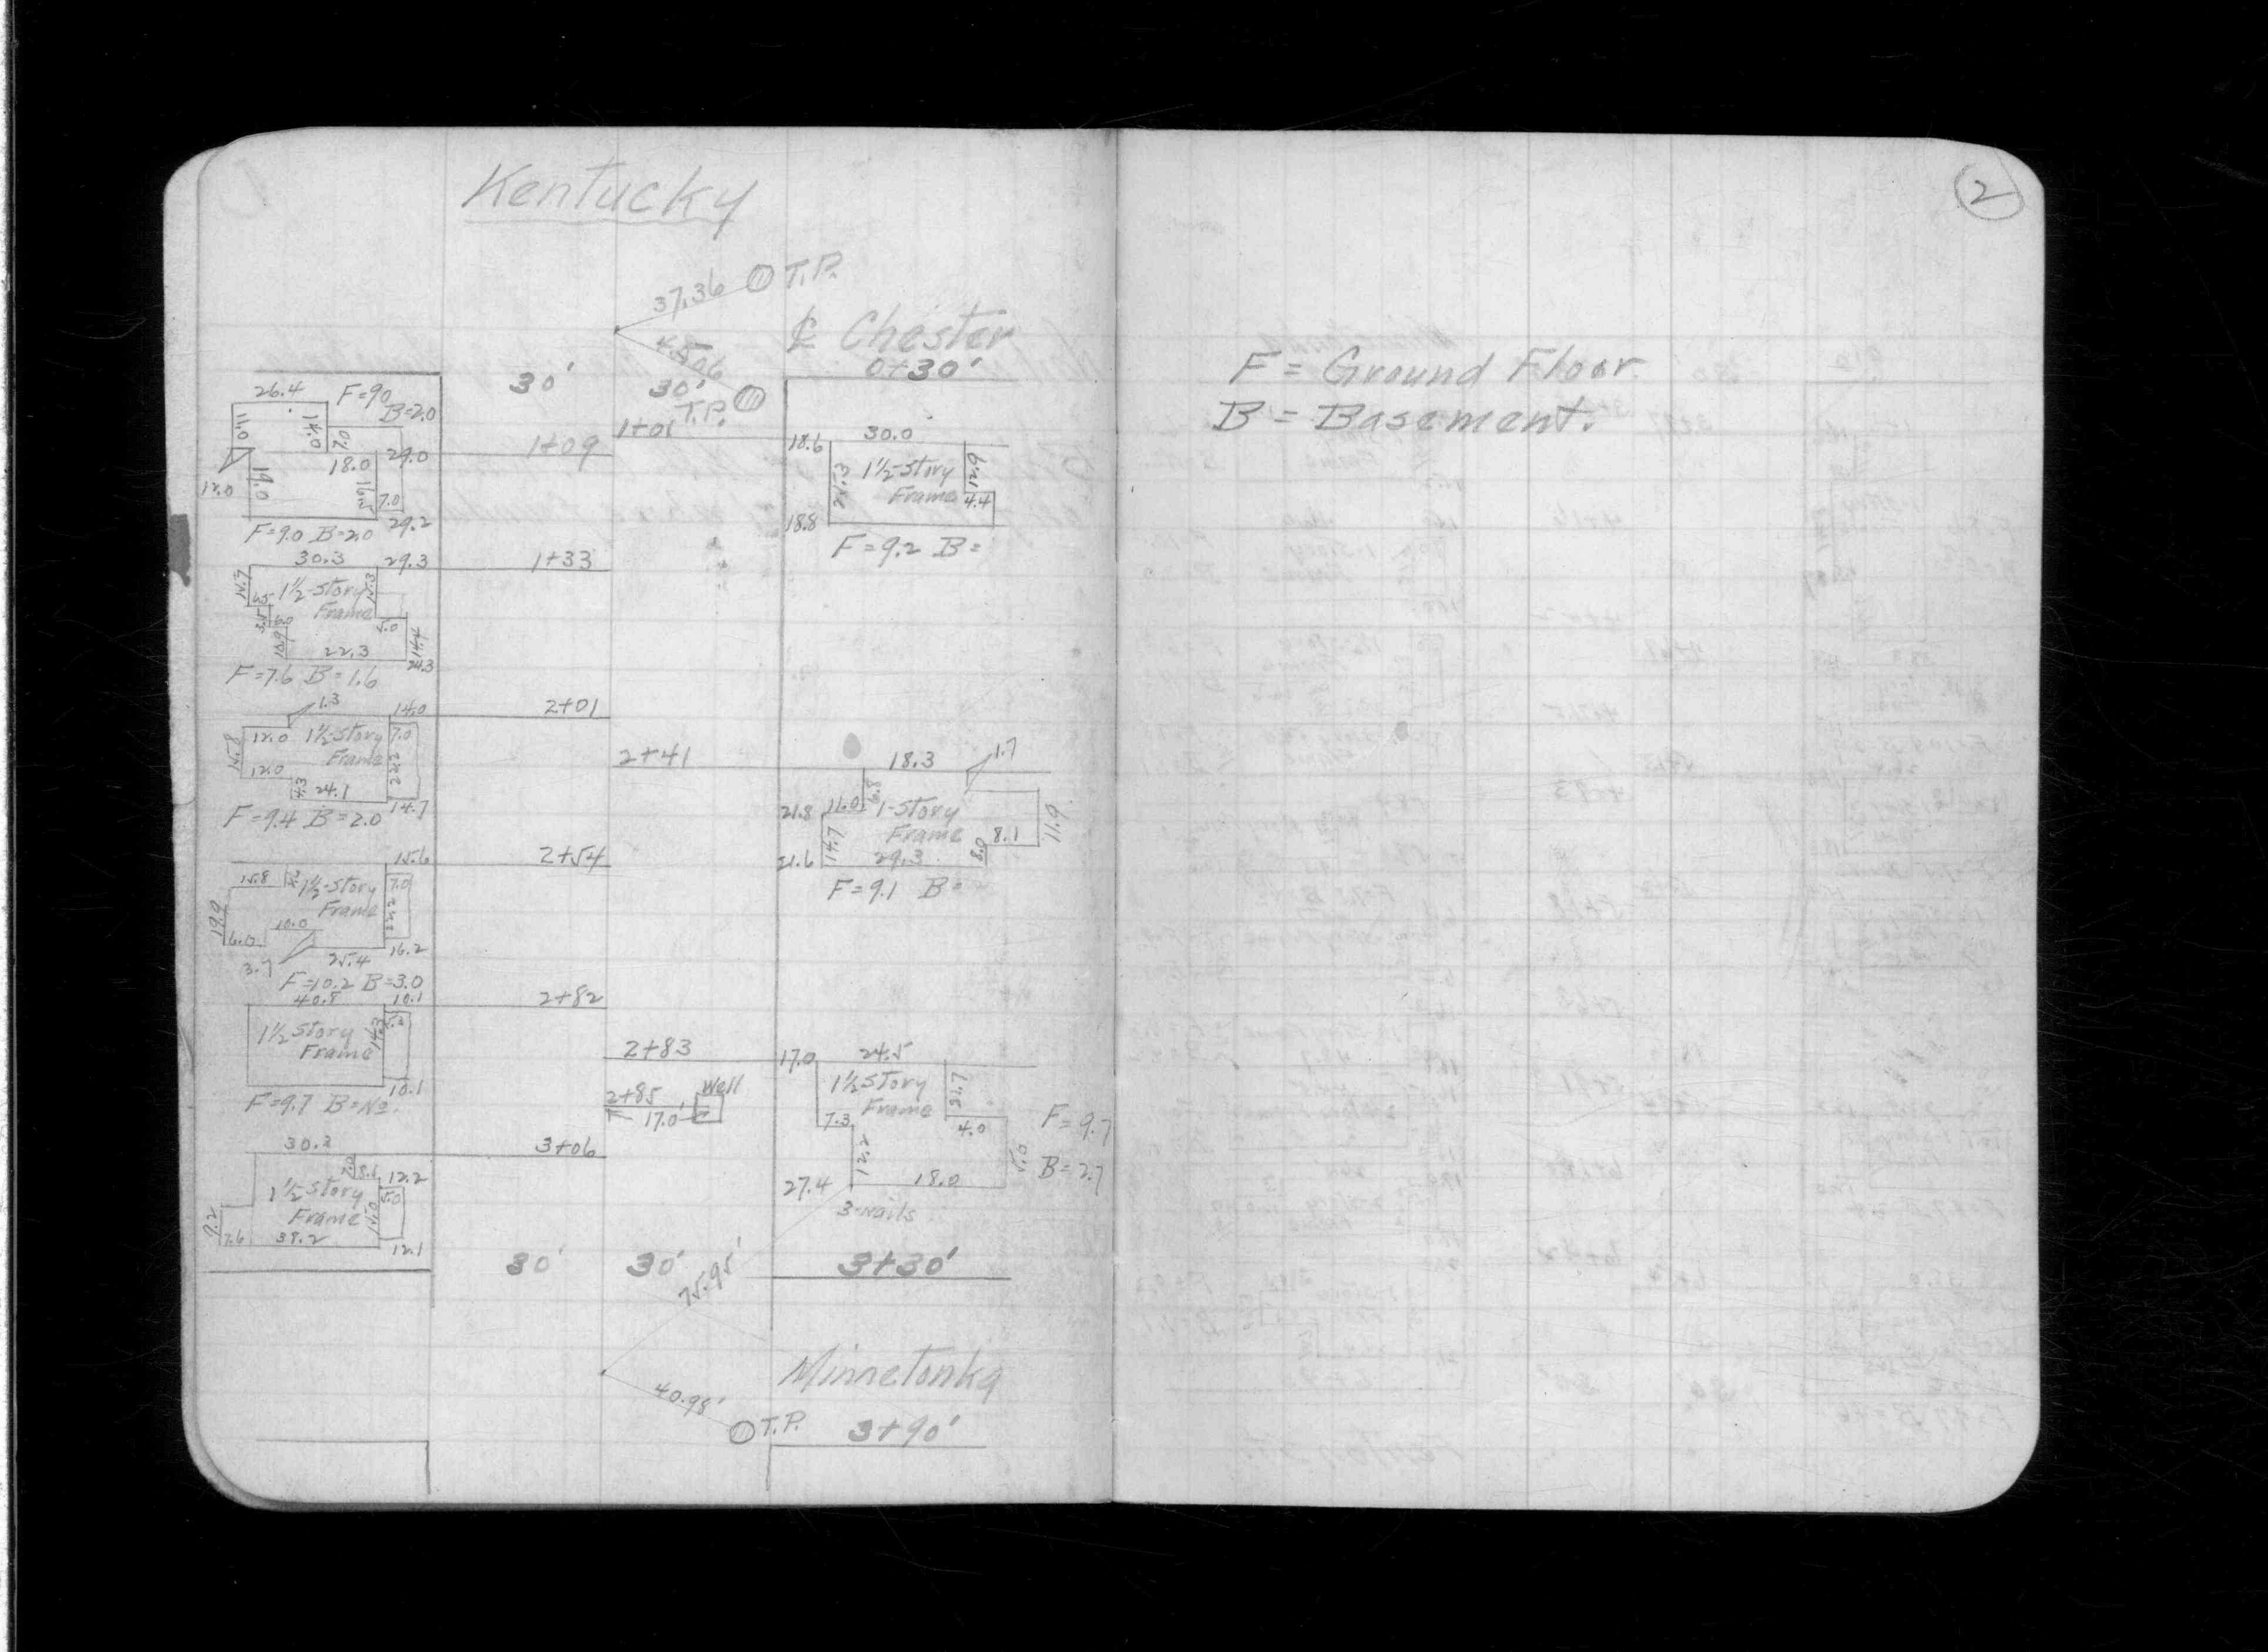 Kentucky
2
37.36 T.P.
45.06
₵ Chester
0+30'
30'
30'
T.P.
26.4 F=90
B=2.0
11.0 14.0
1+01
1+09
18.0 29.0
12.0 19.0 7.0
29.2
F=9.0 B=2.0
18.6 30.0
1½-Story
Frame
4.4
18.8
F=9.2 B=
30.3 29.3
1+33
1½-Story
Frame
22.3
24.3
F=7.6 B=1.6
1.3
14.0
2+01
14.8 12.0 1½-Story 7.0
Frame 22.2
12.0
4.3 24.1
14.7
F=9.4 B=2.0
2+41
18.3 1.7
6.8
21.8 11.0 1-Story
Frame
14.7 8.1 11.9
21.6 29.3 8.0
F=9.1 B=
15.6
2+54
15.8 1½-Story 7.0
Frame 22.2
19.9 10.0
6.0
3.7 25.4 16.2
F=10.2 B=3.0
40.8 10.1
2+82
1½ Story
Frame 14.3 5.3
10.1
F=9.7 B=No.
2+83
17.0 24.5
1½ Story
Frame
7.3 4.0
12.1 5.0
27.4 18.0
3-nails
F=9.7
B=2.7
2+85 Well
17.0'
30.3
3+06
8.1 12.2
1½ Story 5.0
Frame 15.0
9.2
7.6 38.2 12.1
30' 30'
75.95'
3+30'
Minnetonka
40.98'
T.P. 3+90'
F = Ground Floor.
B = Basement.